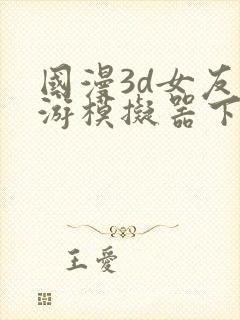 國漫3d女友
游模擬器下
王愛